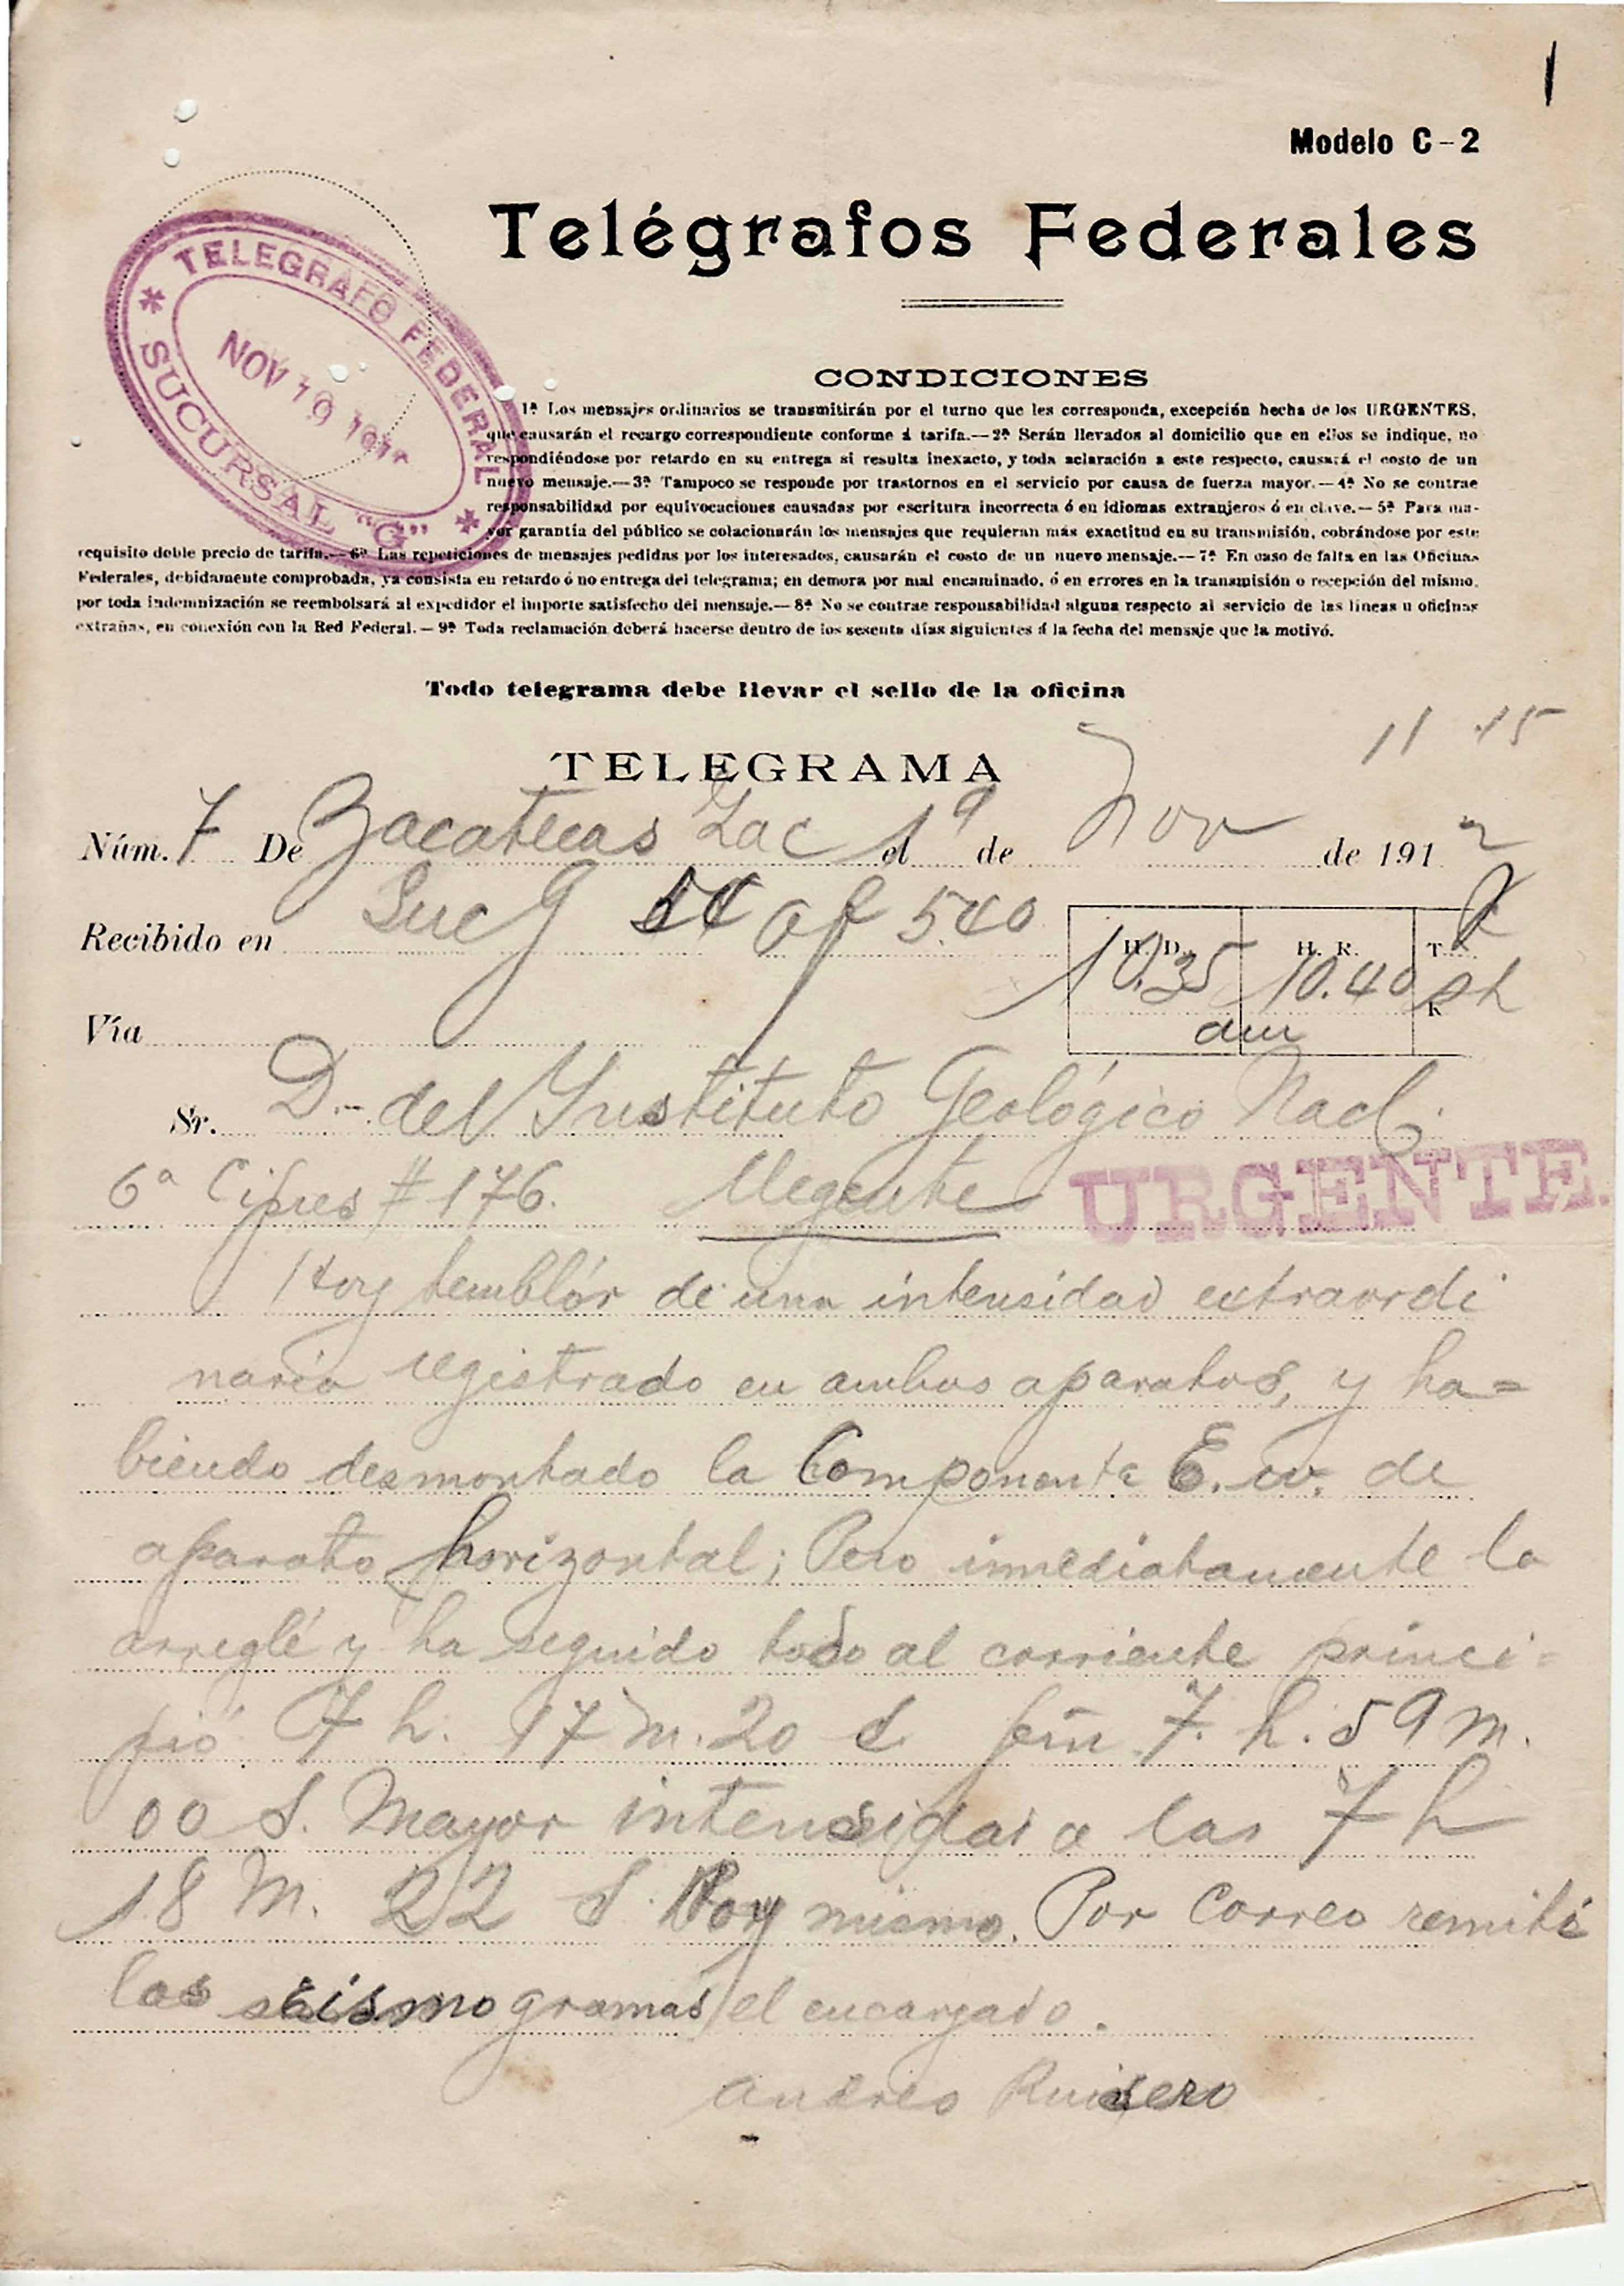 Modelo C-2
Telégrafos Federales
TELEGRAFO FEDERAL
NOV 19
SUCURSAL "G"
CONDICIONES
1ª Los mensajes ordinarios se transmitirán por el turno que les corresponda, excepción hecha de los URGENTES,
que causarán el recargo correspondiente conforme á tarifa.—2ª Serán llevados al domicilio que en ellos se indique, no
respondiéndose por retardo en su entrega si resulta inexacto, y toda aclaración a este respecto, causará el costo de un
nuevo mensaje.—3ª Tampoco se responde por trastornos en el servicio por causa de fuerza mayor.—4ª No se contrae
responsabilidad por equivocaciones causadas por escritura incorrecta ó en idiomas extranjeros ó en clave.—5ª Para ma-
yor garantía del público se colacionarán los mensajes que requieran más exactitud en su transmisión, cobrándose por este
requisito doble precio de tarifa.—6ª Las repeticiones de mensajes pedidas por los interesados, causarán el costo de un nuevo mensaje.—7ª En caso de falta en las Oficinas
Federales, debidamente comprobada, ya consista en retardo ó no entrega del telegrama; en demora por mal encaminado, ó en errores en la transmisión o recepción del mismo,
por toda indemnización se reembolsará al expedidor el importe satisfecho del mensaje.—8ª No se contrae responsabilidad alguna respecto al servicio de las líneas u oficinas
extrañas, en conexión con la Red Federal.—9ª Toda reclamación deberá hacerse dentro de los sesenta días siguientes á la fecha del mensaje que la motivó.
Todo telegrama debe llevar el sello de la oficina
11 15
TELEGRAMA
Núm. 7 De Zacatecas Zac el 19 de Nov de 1912
Recibido en Suc G of 5.40
H. D. H. R. T.
10.35 10.40 R
am
Vía
Sr. D.- del Instituto Geológico Nacl.
6ª Ciprés # 176. Urgente URGENTE.
Hoy temblór de una intensidad extraordi
naria registrado en ambos aparatos, y ha=
biendo desmontado la Componente E. w. de
aparato horizontal; Pero inmediatamente la
arreglé y ha seguido todo al corriente princi=
pió 7 h. 17 m. 20 s. fin 7. h. 59 m.
00 S. Mayor intensidad a las 7 h
18 M. 22 S. Hoy mismo. Por Correo remití
los seismogramas el encargado.
Andres